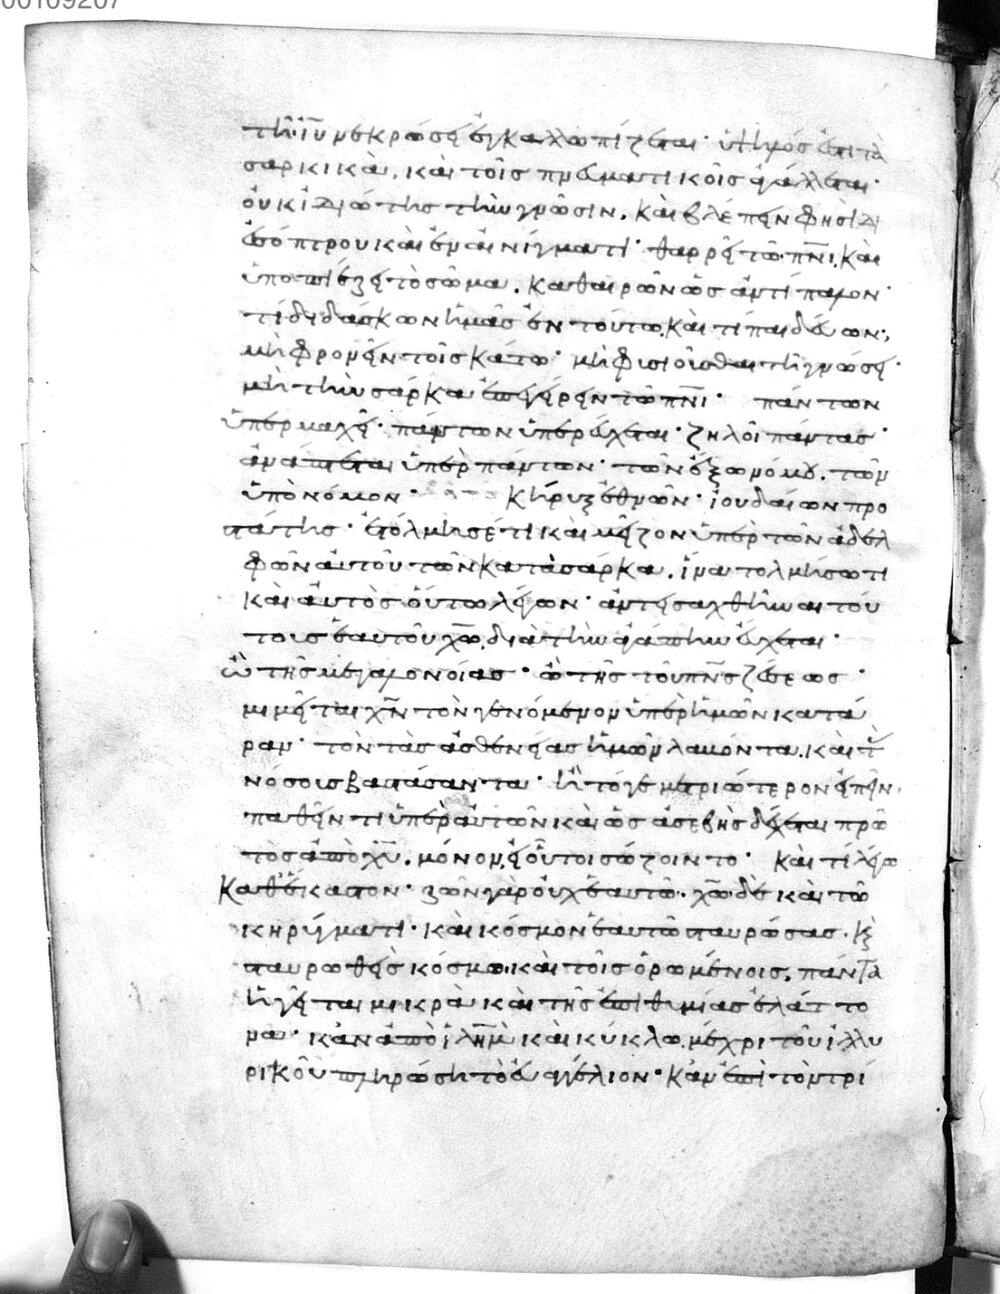 00109207
τῆ ἰῦ νεκρώσει ἐγκαλλωπίζεται· ὑπέρ ἐστι τὰ
σαρκικὰ, καὶ τοῖς πνευματικοῖς ἀγάλλεται·
οὐκ ἰδιώτης τὴν γνῶσιν, καὶ βλέπειν φησὶ δι
ἐσόπτρου καὶ ἐν αἰνίγματι· θαρρεῖ τῶ πνι, καὶ
ὑποπιέζει τὸ σῶμα, καθαιρῶν ὡς ἀντίπαλον·
τί διδάσκων ἡμᾶς ἐν τούτω, καὶ τί παιδεύων;
μὴ φρονεῖν τοῖς κάτω· μὴ φυσιοῦσθαι τῆ γνώσει·
μὴ τὴν σάρκα ἐπεγείρειν τῶ πνι· πάντων
ὑπερμαχεῖ· πάντων ὑπερεύχεται· ζηλοῖ πάντας·
ἀνάπτεται ὑπὲρ πάντων· τῶν ἔξω νόμου, τῶν
ὑπὸ νόμον· κῆρυξ ἐθνῶν· ἰουδαίων προ
στάτης· ἐτόλμησέ τι καὶ μεῖζον ὑπὲρ τῶν ἀδελ
φῶν αὐτοῦ τῶν κατὰ σάρκα, ἵνα τολμήσω τι
καὶ αὐτὸς οὕτω λέγων· ἀντεισαχθῆναι τού
τους ἑαυτοῦ χῶ, διὰ τὴν ἀγάπην εὔχεται·
ὢ τῆς μεγαλονοίας· ὢ τῆς τοῦ πνς ζέσεως·
μιμεῖται χν τὸν γενόμενον ὑπὲρ ἡμῶν κατά
ραν· τὸν τὰς ἀσθενείας ἡμῶν λαβόντα, καὶ τὰς
νόσους βαστάσαντα· ἢ τό γε μετριώτερον εἰπεῖν,
παθεῖν τι ὑπὲρ αὐτῶν καὶ ὡς ἀσεβὴς δέχεται πρῶ
τος ἀπὸ χυ, μόνον εἰ οὗτοι σώζοιντο· καὶ τί λέγω
καθέκαστον· ζῶν γὰρ οὐχ ἑαυτῶ, χῶ δὲ καὶ τῶ
κηρύγματι· καὶ κόσμον ἑαυτῶ σταυρώσας, κ
σταυρωθεὶς κόσμω καὶ τοῖς ὁρωμένοις, πάντα
ἡγεῖται μικρὰ καὶ τῆς ἐπιθυμίας ἐλάττο
να· κἂν ἀπὸ ἱλημ καὶ κύκλω, μέχρι τοῦ ἰλλυ
ρικοῦ πληρώση τὸ εὐαγγέλιον· κἂν ἐπὶ τὸν τρί